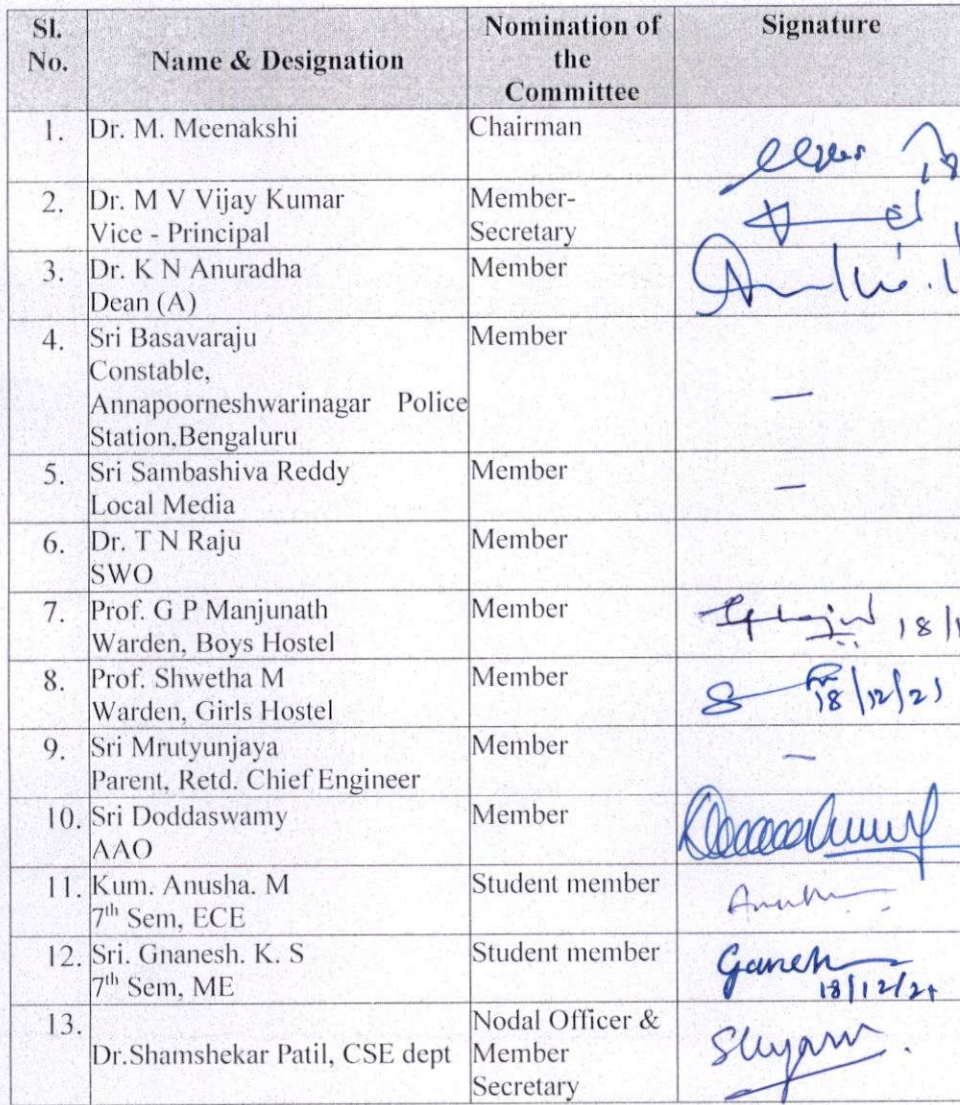 Sl. No.
Name & Designation
Nomination of the Committee
Signature
1. Dr. M. Meenakshi
Chairman
2. Dr. M V Vijay Kumar
Vice - Principal
Member-
Secretary
3. Dr. K N Anuradha
Dean (A)
Member
4. Sri Basavaraju
Constable,
Annapoorneshwarinagar Police
Station.Bengaluru
Member
—
5. Sri Sambashiva Reddy
Local Media
Member
—
6. Dr. T N Raju
SWO
Member
7. Prof. G P Manjunath
Warden, Boys Hostel
Member
18/1
8. Prof. Shwetha M
Warden, Girls Hostel
Member
18/12/21
9. Sri Mrutyunjaya
Parent, Retd. Chief Engineer
Member
—
10. Sri Doddaswamy
AAO
Member
11. Kum. Anusha. M
7th Sem, ECE
Student member
12. Sri. Gnanesh. K. S
7th Sem, ME
Student member
Ganesh
18/12/21
13.
Dr.Shamshekar Patil, CSE dept
Nodal Officer &
Member
Secretary